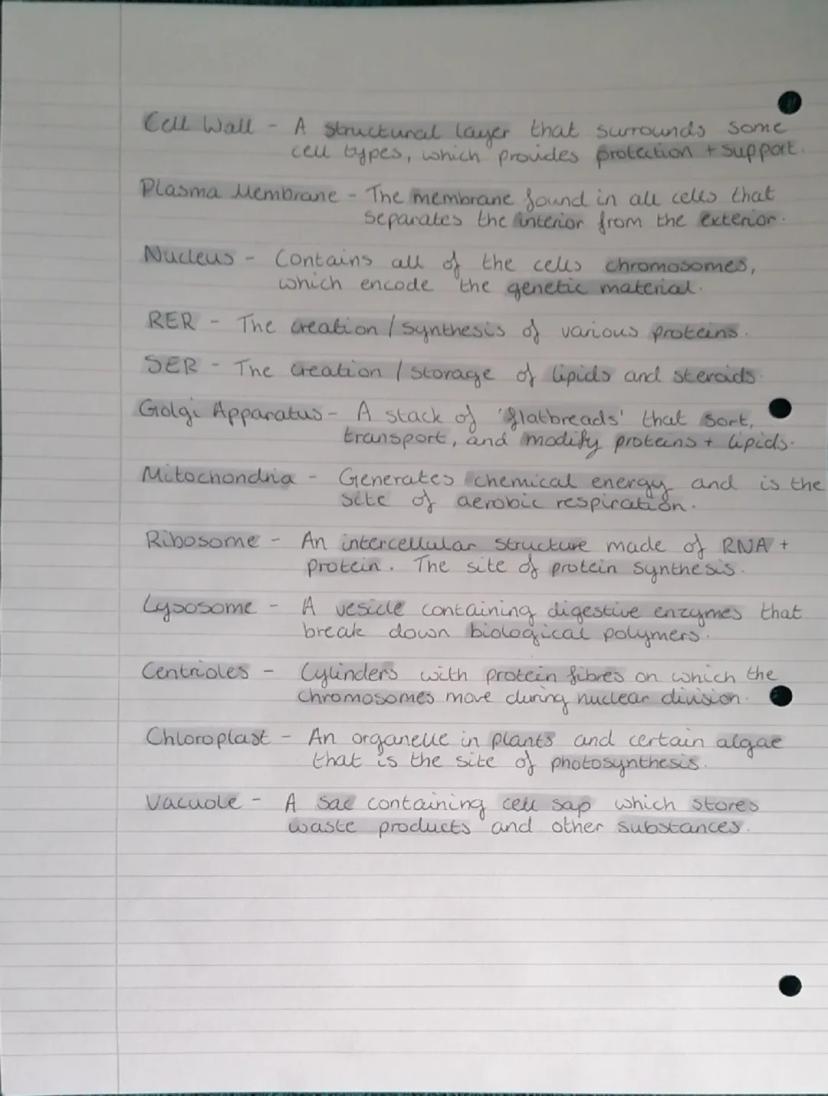 Cell Wall - A structural layer that surrounds some
cell types, which provides protection + support.
Plasma Membrane - The membrane found in all cells that
separates the interior from the exterior.
Nucleus - Contains all of the cells chromosomes,
which encode the genetic material.
RER - The creation / synthesis of various proteins.
SER - The creation / storage of lipids and steroids
Golgi Apparatus - A stack of 'flatbreads' that sort,
transport, and modify proteins + lipids.
Mitochondria - Generates chemical energy and is the
site of aerobic respiration.
Ribosome - An intercellular structure made of RNA +
protein. The site of protein synthesis.
Lysosome - A vesicle containing digestive enzymes that
break down biological polymers.
Centrioles - Cylinders with protein fibres on which the
chromosomes move during nuclear division.
Chloroplast - An organelle in plants and certain algae
that is the site of photosynthesis.
Vacuole - A sac containing cell sap which stores
waste products and other substances.